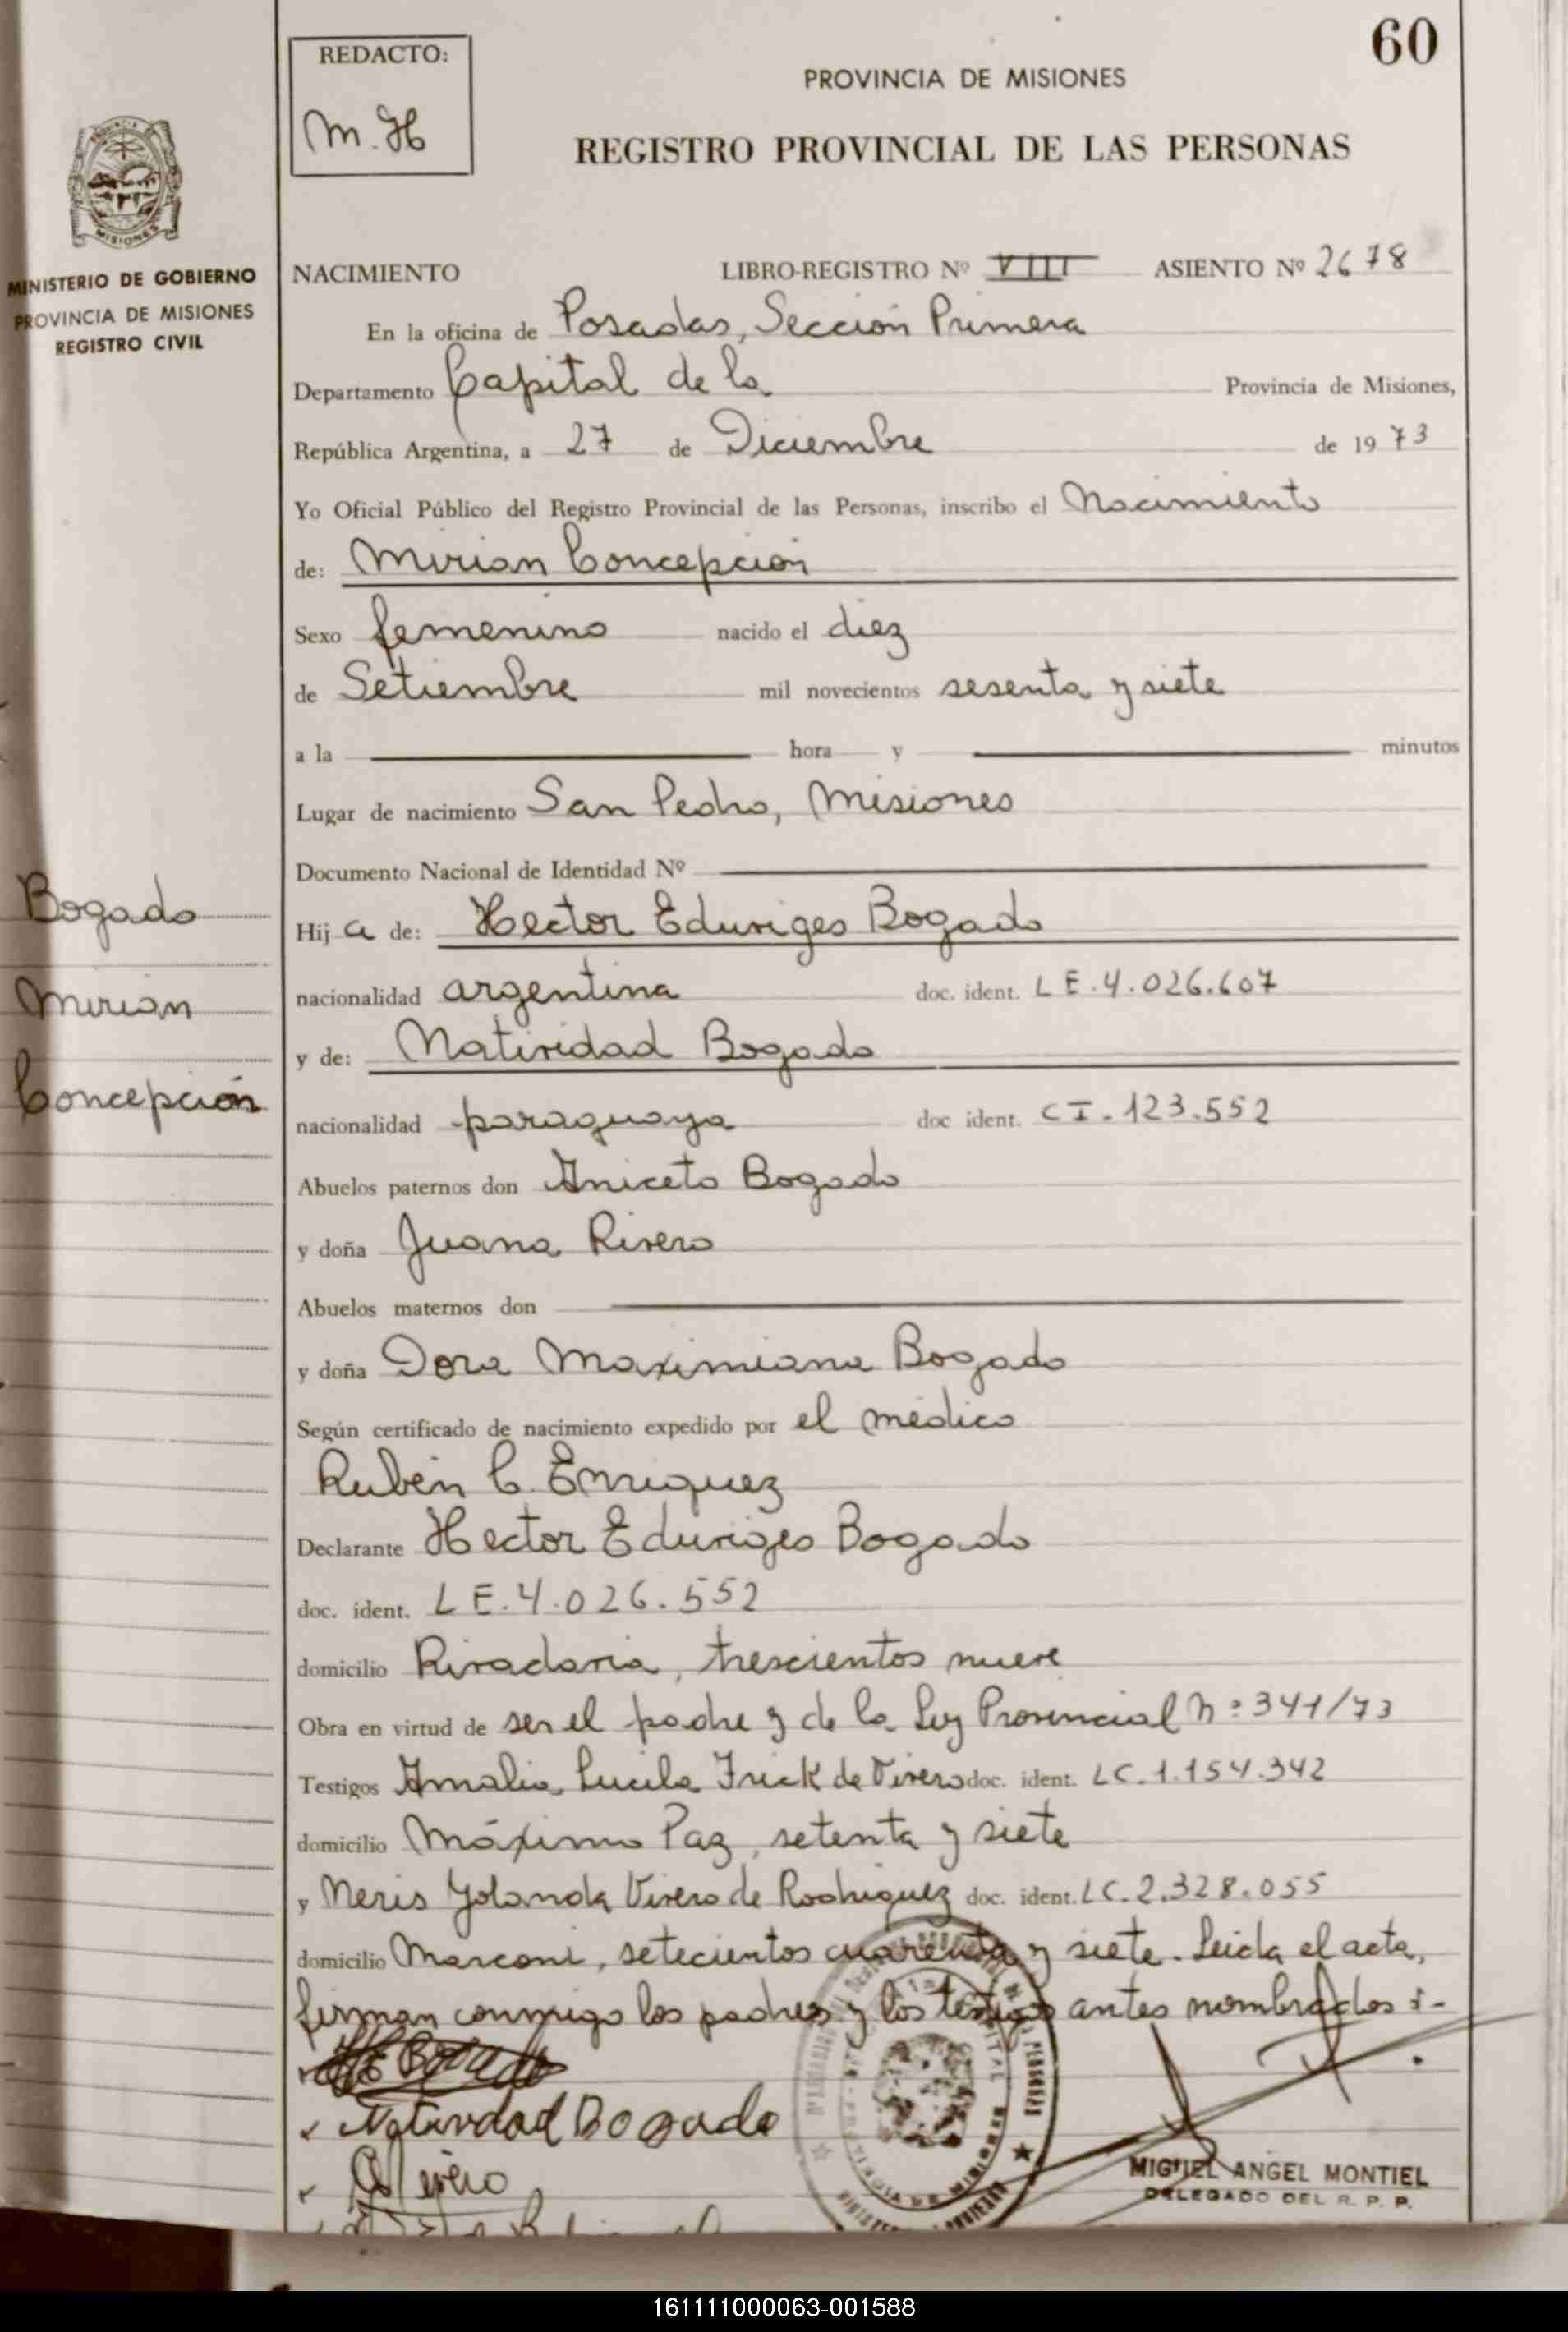 60
REDACTO:
M.H
PROVINCIA DE MISIONES
REGISTRO PROVINCIAL DE LAS PERSONAS
MISIONES
MINISTERIO DE GOBIERNO
PROVINCIA DE MISIONES
REGISTRO CIVIL
NACIMIENTO LIBRO-REGISTRO Nº VIII ASIENTO Nº 2678
En la oficina de Posadas, Sección Primera
Departamento Capital de la Provincia de Misiones,
República Argentina, a 27 de Diciembre de 1973
Yo Oficial Público del Registro Provincial de las Personas, inscribo el Nacimiento
de: Mirian Concepción
Sexo femenino nacido el diez
de Setiembre mil novecientos sesenta y siete
a la hora y minutos
Lugar de nacimiento San Pedro, Misiones
Documento Nacional de Identidad Nº
Bogado
Mirian
Concepción
Hija de: Hector Eduviges Bogado
nacionalidad argentina doc. ident. LE.4.026.607
y de: Natividad Bogado
nacionalidad paraguaya doc ident. CI.123.552
Abuelos paternos don Aniceto Bogado
y doña Juana Rivero
Abuelos maternos don
y doña Dora Maximiana Bogado
Según certificado de nacimiento expedido por el médico
Rubén C. Enriquez
Declarante Hector Eduviges Bogado
doc. ident. LE.4.026.552
domicilio Rivadavia, trescientos nueve
Obra en virtud de ser el padre y de la Ley Provincial Nº 341/73
Testigos Amalia Lucila Frick de Vivero doc. ident. LC.1.154.342
domicilio Máximo Paz, setenta y siete
y Neris Yolanda Vivero de Rodriguez doc. ident. LC.2.328.055
domicilio Marconi, setecientos cuarenta y siete. Leida el acta,
firman conmigo los padres y los testigos antes nombrados
Natividad Bogado
MIGUEL ANGEL MONTIEL
DELEGADO DEL R. P. P.
161111000063-001588